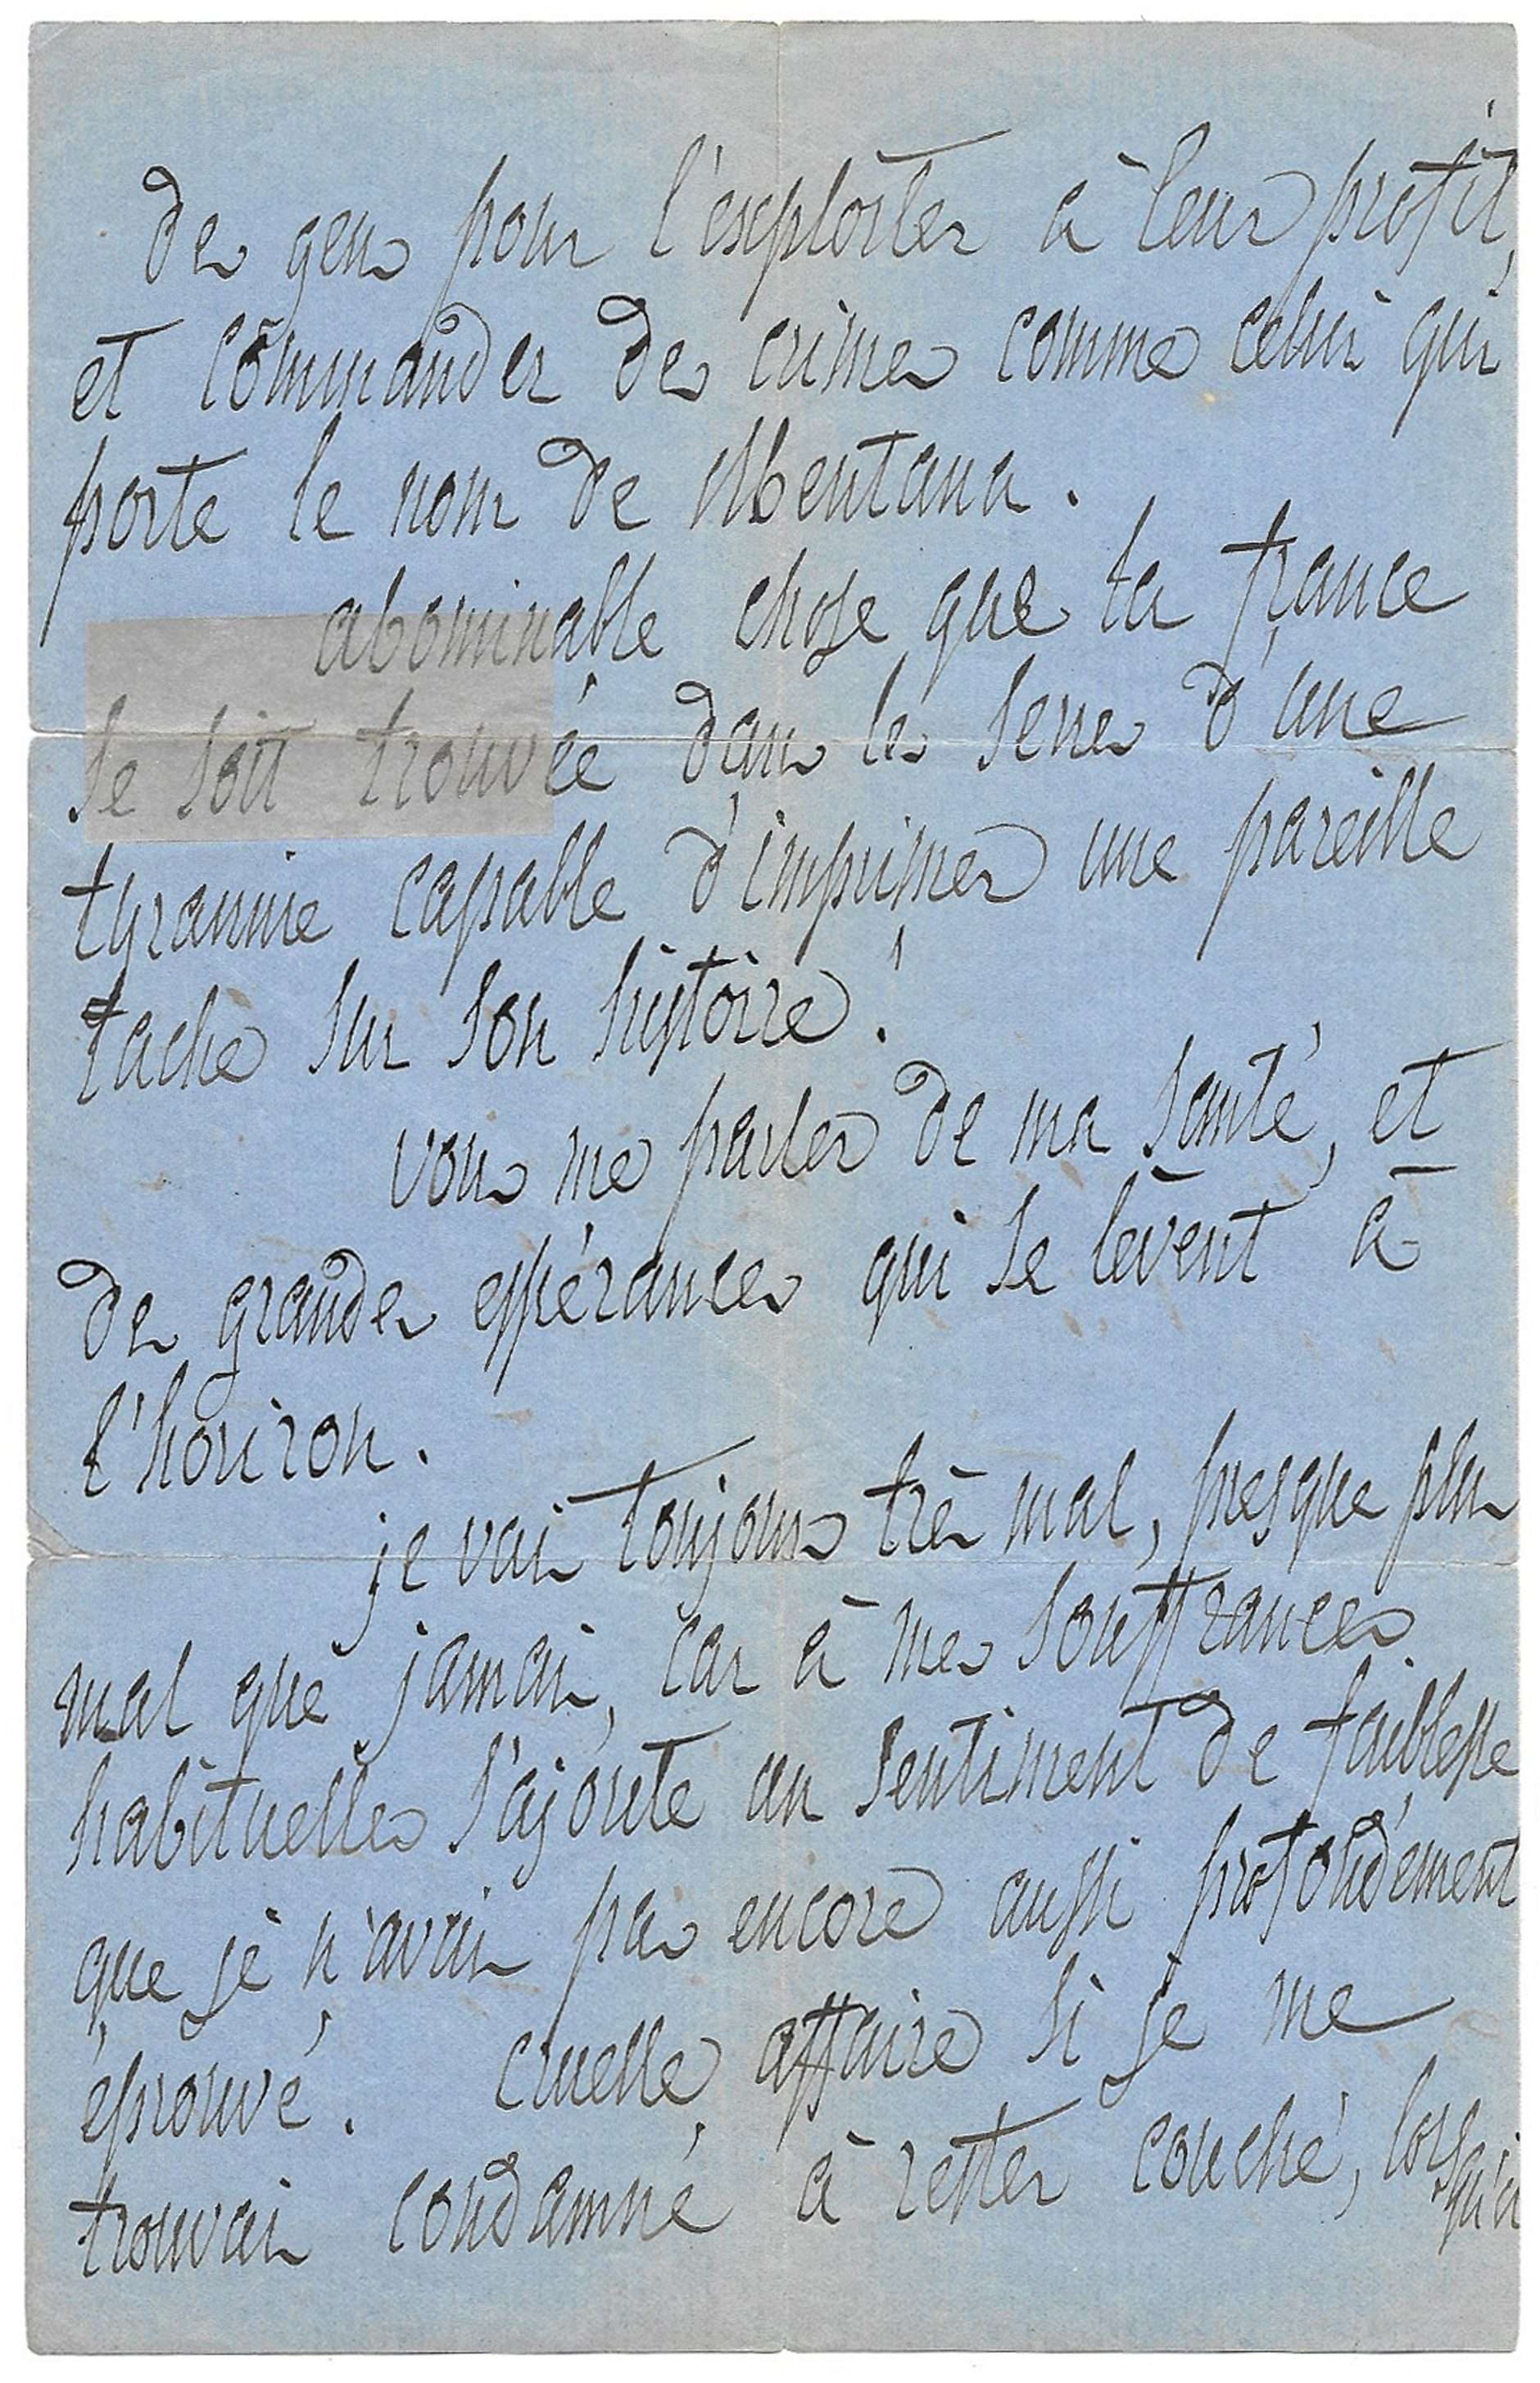 des gens pour l'exploiter à leur profit,
et commander des crimes comme celui qui
porte le nom de Mentana.
abominable chose que la france
se soit trouvée dans les serres d'une
tyrannie capable d'imprimer une pareille
tache sur son histoire !
vous me parlez de ma santé, et
des grandes espérances qui se lèvent à
l'horizon.
je vais toujours très mal, presque plus
mal que jamais, car à mes souffrances
habituelles s'ajoute un sentiment de faiblesse
que je n'avais pas encore aussi profondément
éprouvé. cruelle affaire si je me
trouvais condamné à rester couché, lorsqu'il